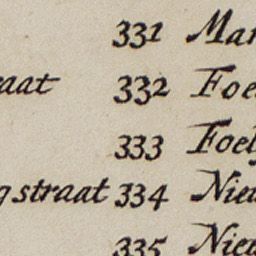 331 Mar
aat 332 Foe
333 Foel
gstraat 334 Nieu
335 Nieu